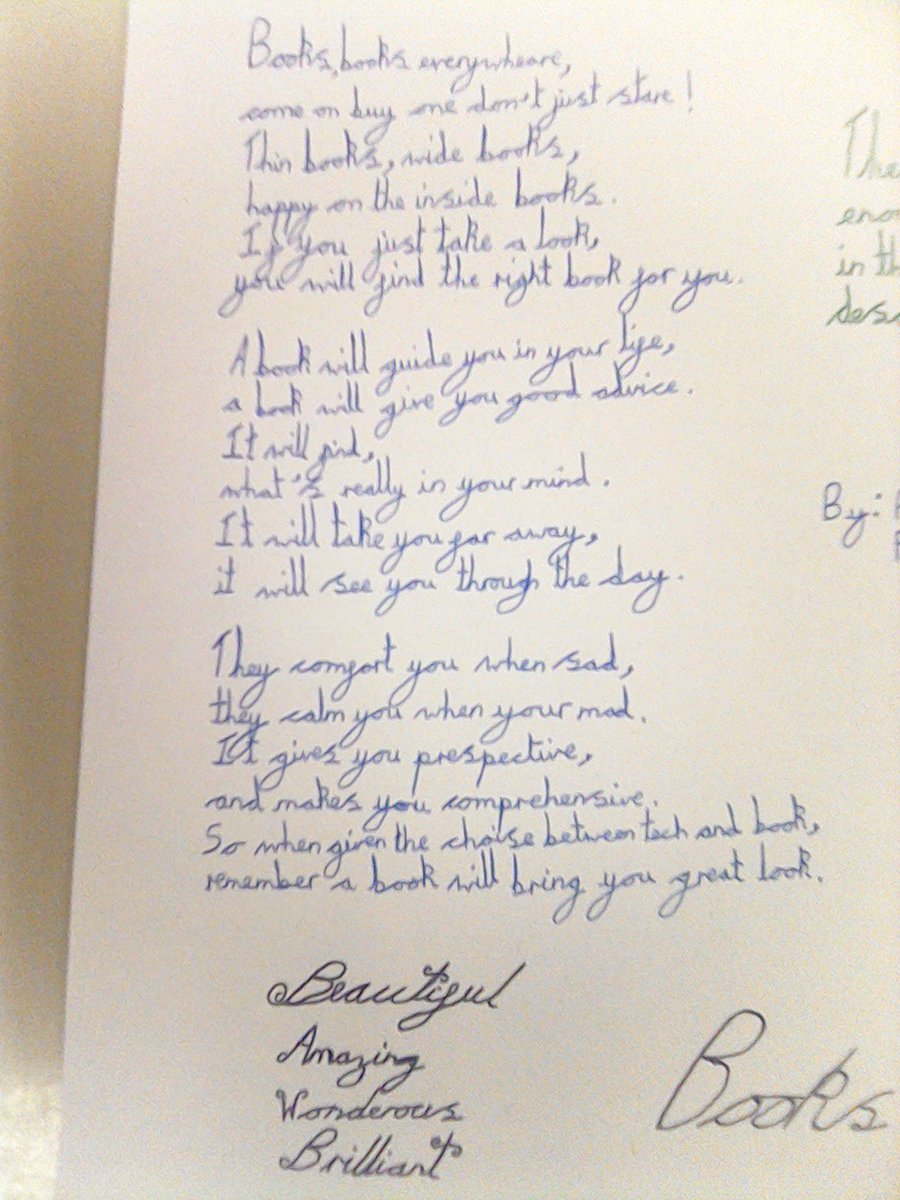 Books, books everywheare,
come on buy one don't just stare!
Thin books, wide books,
happy on the inside books.
If you just take a look,
you will find the right book for you.
A book will guide you in your life,
a book will give you good advice.
It will find,
what's really in your mind.
It will take you far away,
it will see you through the day.
They comfort you when sad,
they calm you when your mad.
It gives you prespective,
and makes you comprehensive.
So when given the choise between tech and book,
remember a book will bring you great look.
Beautiful
Amazing
Wonderous
Brilliant
Books
in
By: